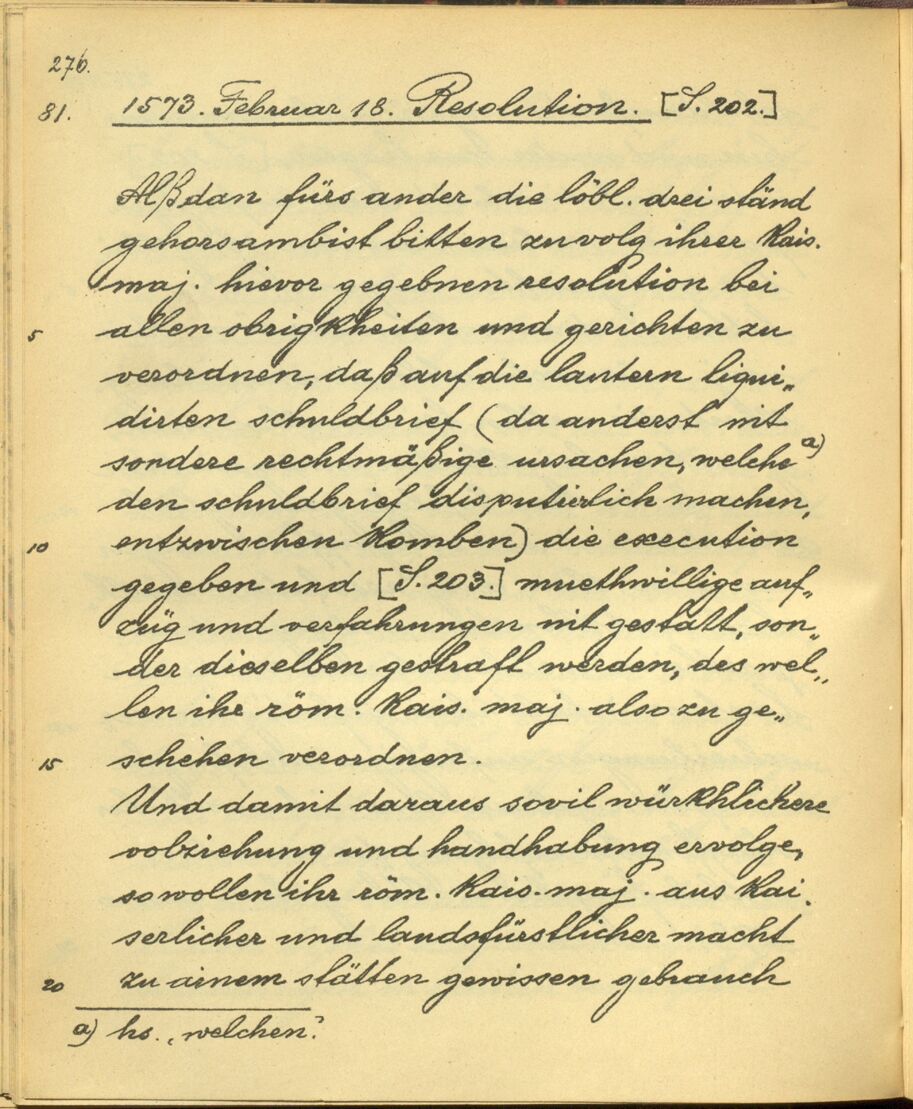 276.
81. 1573. Februar 18. Resolution. [S. 202.]
Alßdan fürs ander die löbl. drei ständ
gehorsambist bitten zuvolg ihrer kais.
maj. hievor gegebnen resolution bei
5 allen obrigkheiten und gerichten zu
verordnen, daß auf die lautern liqui„
dirten schuldbrief (da anderst nit
sondere rechtmäßige ursachen, welche a)
den schuldbrief disputierlich machen,
10 entzwischen komben) die execution
gegeben und [S. 203.] muethwillige auf„
züg und verfahrungen nit gestatt, son„
der dieselben gestraft werden, des wel„
len ihr röm. kais. maj. also zu ge„
15 schehen verordnen.
Und damit daraus sovil würkhlichere
volziehung und handhabung ervolge,
so wollen ihr röm. kais. maj. aus kai„
serlicher und landsfürstlicher macht
20 zu ainem stätten gewissen gebrauch
a) hs. „welchen“.